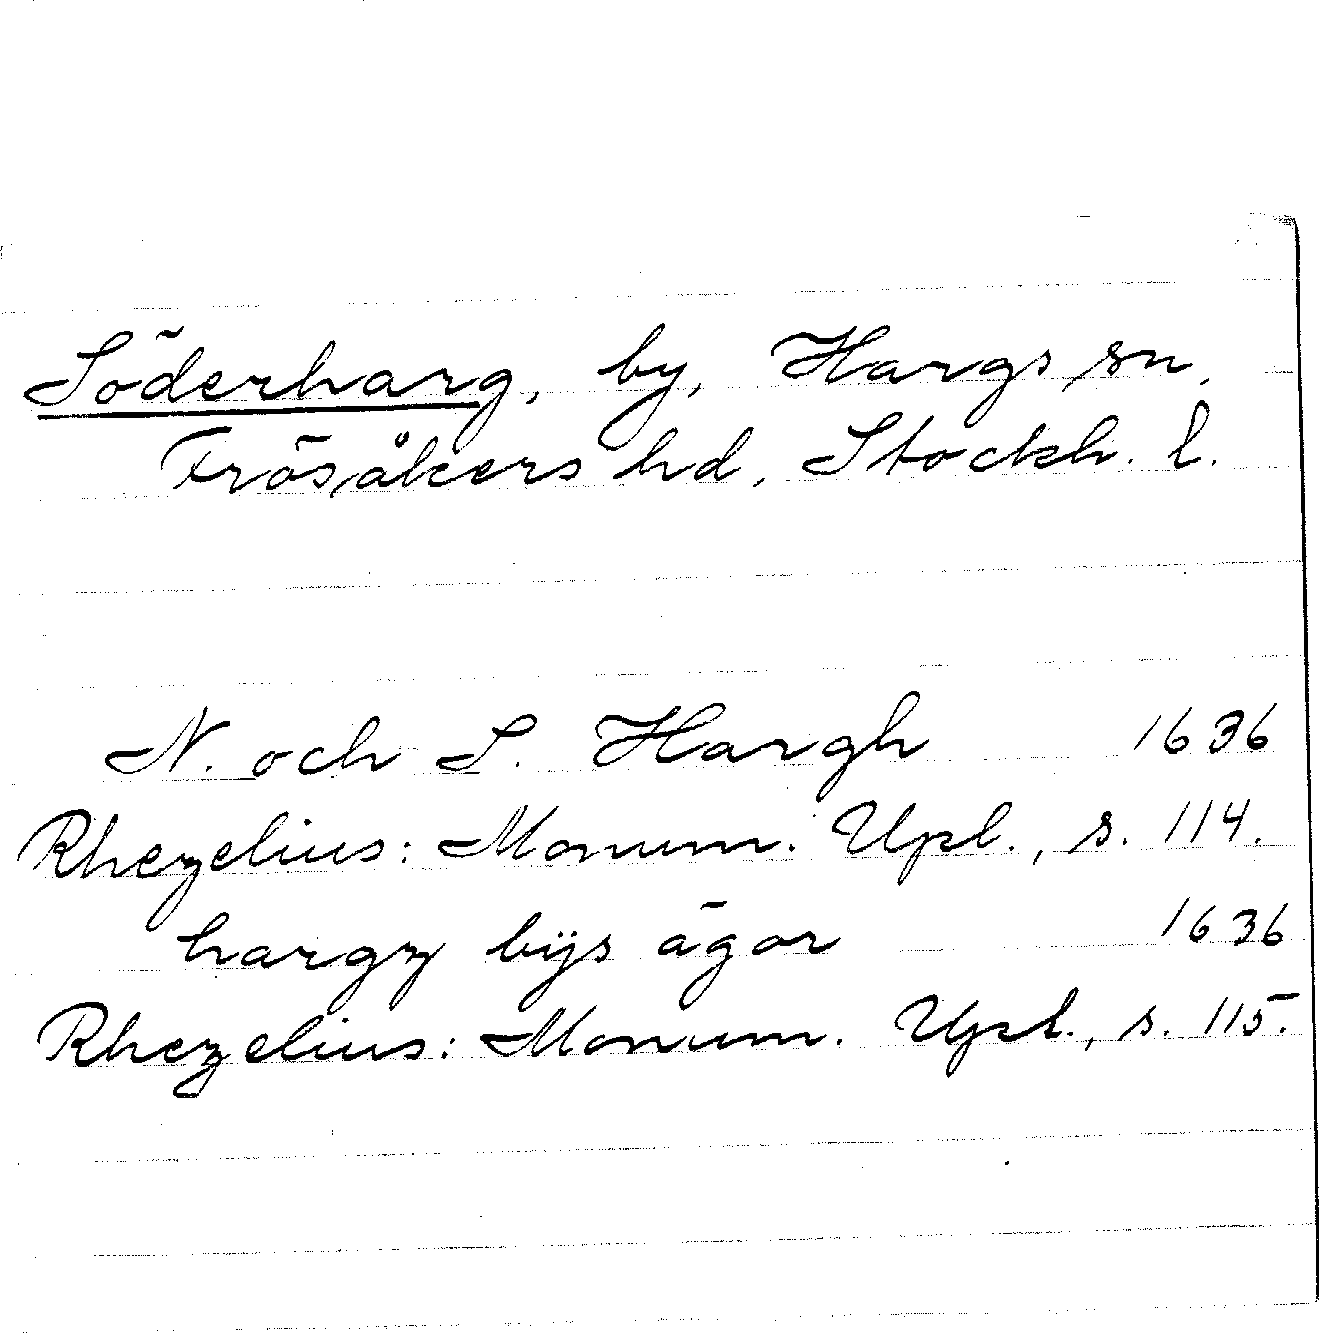 Söderharg, by, Hargs sn,
Frösåkers hd, Stockh. l.
N. och S. Hargh 1636
Rhezelius: Monum. Upl., s. 114.
hargz bÿs ägor 1636
Rhezelius: Monum. Upl., s. 115.